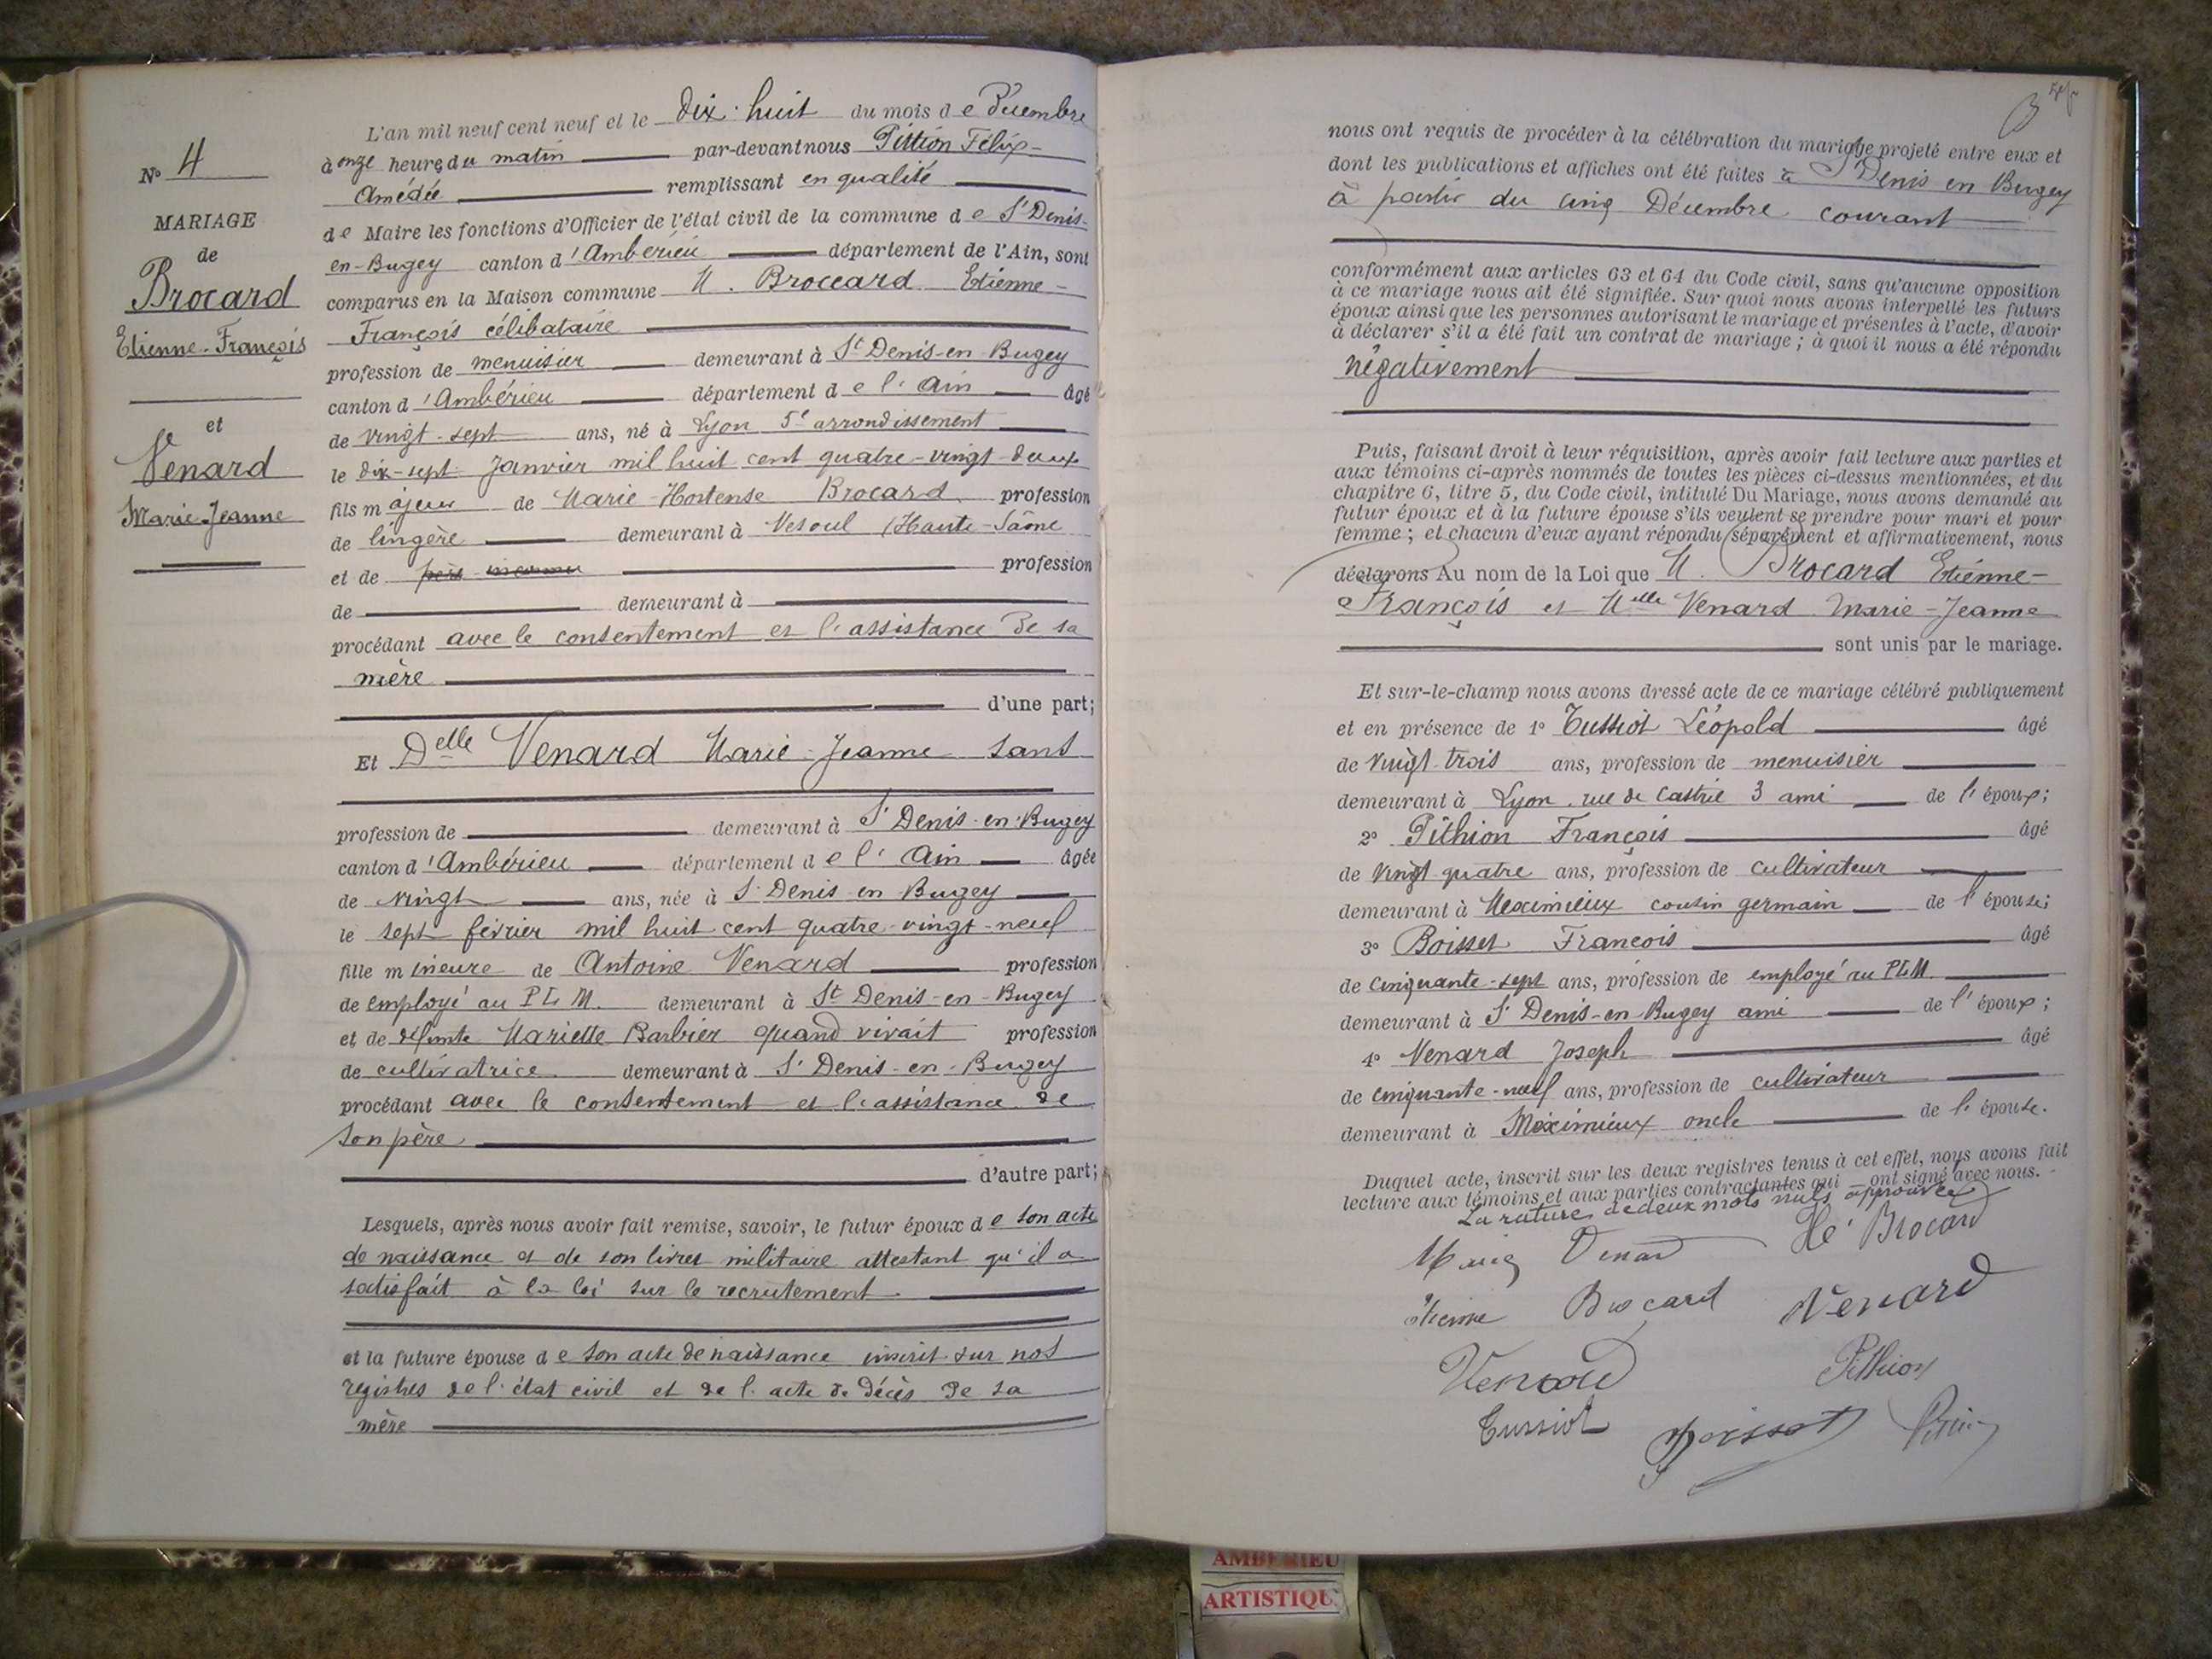 N° 4
MARIAGE
de
Brocard
Etienne-François
et
Venard
Marie-Jeanne
L'an mil neuf cent neuf et le dix-huit du mois de Décembre
à onze heures du matin par-devant nous Pittion Félix-
Amédée remplissant en qualité
de Maire les fonctions d'Officier de l'état civil de la commune de St Denis-
en-Bugey canton d'Ambérieu département de l'Ain, sont
comparus en la Maison commune M. Broccard Etienne-
François célibataire
profession de menuisier demeurant à St Denis-en-Bugey
canton d'Ambérieu département de l'Ain âgé
de vingt-sept ans, né à Lyon 5e arrondissement
le dix-sept Janvier mil huit cent quatre-vingt-deux
fils majeur de Marie-Hortense Brocard profession
de lingère demeurant à Vesoul (Haute-Saône
et de père inconnu profession
de demeurant à
procédant avec le consentement et l'assistance de sa
mère
d'une part;
Et Delle Venard Marie-Jeanne sans
profession de demeurant à St Denis-en-Bugey
canton d'Ambérieu département de l'Ain âgée
de vingt ans, née à St Denis en Bugey
le sept février mil huit cent quatre-vingt-neuf
fille mineure de Antoine Venard profession
de employé au PLM. demeurant à St Denis-en-Bugey
et de défunte Mariette Barbier quand vivait profession
de cultivatrice demeurant à St Denis-en-Bugey
procédant avec le consentement et l'assistance de
son père
d'autre part;
Lesquels, après nous avoir fait remise, savoir, le futur époux de son acte
de naissance et de son livret militaire attestant qu'il a
satisfait à la loi sur le recrutement.
et la future épouse de son acte de naissance inscrit sur nos
registres de l'état civil et de l'acte de décès de sa
mère
nous ont requis de procéder à la célébration du mariage projeté entre eux et
dont les publications et affiches ont été faites à St Denis en Bugey
à partir du cinq Décembre courant
conformément aux articles 63 et 64 du Code civil, sans qu'aucune opposition
à ce mariage nous ait été signifiée. Sur quoi nous avons interpellé les futurs
époux ainsi que les personnes autorisant le mariage et présentes à l'acte, d'avoir
à déclarer s'il a été fait un contrat de mariage; à quoi il nous a été répondu
négativement
Puis, faisant droit à leur réquisition, après avoir fait lecture aux parties et
aux témoins ci-après nommés de toutes les pièces ci-dessus mentionnées, et du
chapitre 6, titre 5, du Code civil, intitulé Du Mariage, nous avons demandé au
futur époux et à la future épouse s'ils veulent se prendre pour mari et pour
femme; et chacun d'eux ayant répondu séparément et affirmativement, nous
déclarons Au nom de la Loi que M. Brocard Etienne-
François et Melle Venard Marie-Jeanne
sont unis par le mariage.
Et sur-le-champ nous avons dressé acte de ce mariage célébré publiquement
et en présence de 1° Tussiot Léopold âgé
de vingt-trois ans, profession de menuisier
demeurant à Lyon, rue de Castrie 3 ami de l'époux;
2° Pithion François âgé
de vingt quatre ans, profession de cultivateur
demeurant à Meximieux cousin germain de l'épouse;
3° Boisset Francois âgé
de cinquante-sept ans, profession de employé au PLM.
demeurant à St Denis-en-Bugey ami de l'époux;
4° Venard Joseph âgé
de cinquante-neuf ans, profession de cultivateur
demeurant à Meximieux oncle de l'épouse.
Duquel acte, inscrit sur les deux registres tenus à cet effet, nous avons fait
lecture aux témoins et aux parties contractantes qui ont signé avec nous.
La rature de deux mots nuls approuvée
Marie Venard Hé Brocard
Etienne Brocard Venard
Venard Pithion
Tussiot Boisset
AMBERIEU
ARTISTIQU